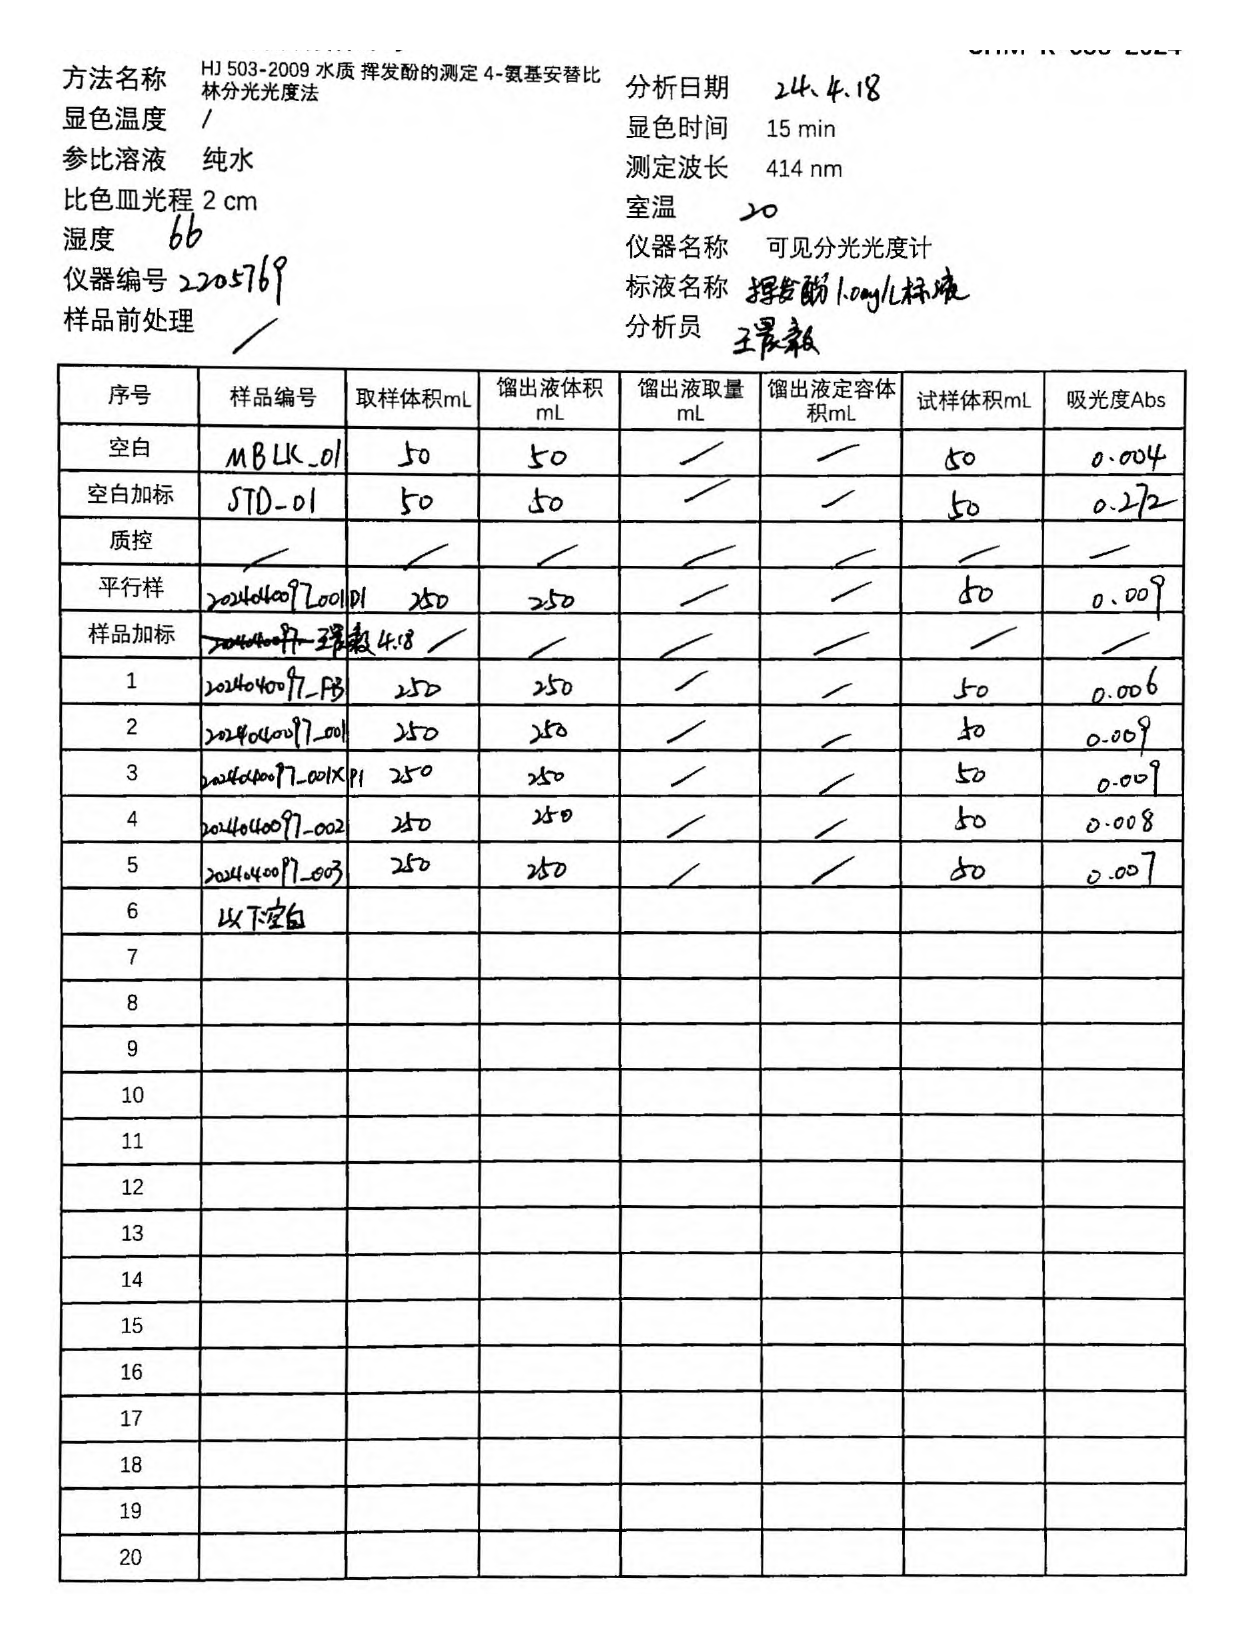 方法名称 HJ 503-2009 水质 挥发酚的测定 4-氨基安替比林分光光度法
分析日期 24.4.18
显色温度 /
显色时间 15 min
参比溶液 纯水
测定波长 414 nm
比色皿光程 2 cm
室温 20
湿度 66
仪器名称 可见分光光度计
仪器编号 2205769
标液名称 挥发酚1.0mg/L标液
样品前处理 /
分析员
序号 样品编号 取样体积mL 馏出液体积mL 馏出液取量mL 馏出液定容体积mL 试样体积mL 吸光度Abs
空白 MBLK_01 50 50 / / 50 0.004
空白加标 STD-01 50 50 / / 50 0.272
质控 / / / / / / /
平行样 2024040097L001D1 250 250 / / 50 0.009
样品加标 2024040097 4.18 / / / / / /
1 2024040097_FB 250 250 / / 50 0.006
2 2024040097_001 250 250 / / 50 0.009
3 2024040097_001XP1 250 250 / / 50 0.009
4 2024040097_002 250 250 / / 50 0.008
5 2024040097_003 250 250 / / 50 0.007
6 以下空白
7
8
9
10
11
12
13
14
15
16
17
18
19
20